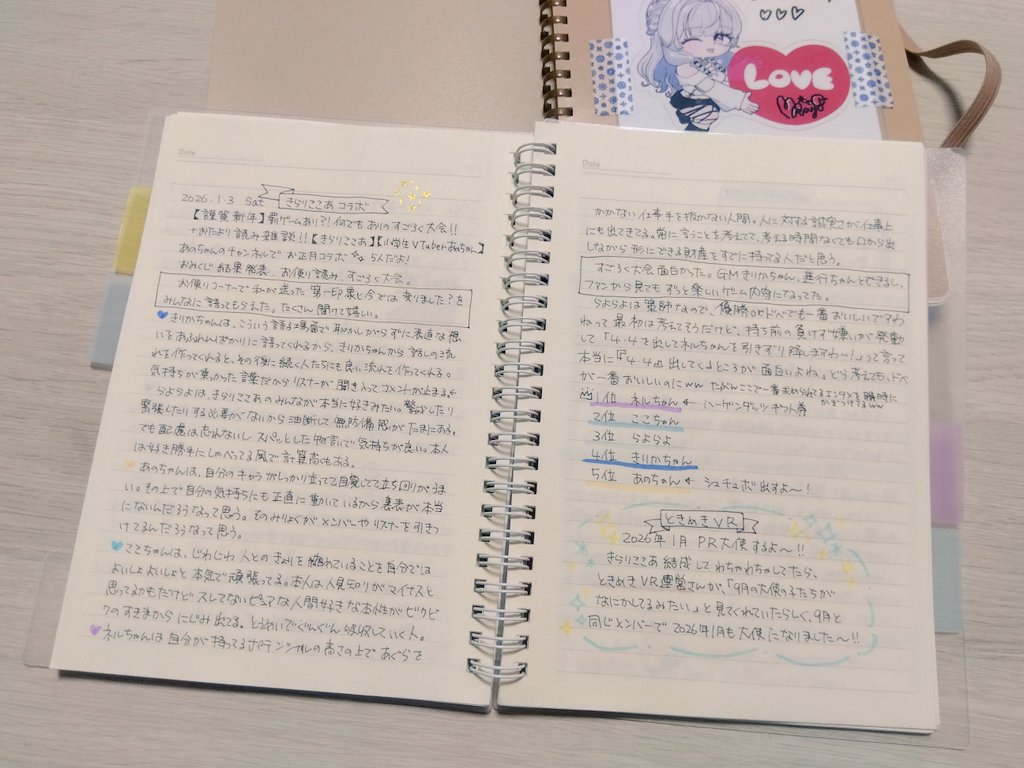 LOVE
Date
2026.1.3 Sat きらりここあ コラボ
【謹賀新年】罰ゲームあり?!何でもありのすごろく大会!!
+おたより読み雑談!!【きらりここあ】【小学生VTuberあのちゃん】
あのちゃんのチャンネルで お正月コラボ 5人だよ!
おみくじ結果発表、お便り読み、すごろく大会。
お便りコーナーで 私が送った 第一印象と今では変りました?を
みんなに語ってもらえた。たくさん聞けて嬉しい。
きりかちゃんは、こういう語る場面で恥ずかしがらずに素直な想
いをあふれんばかりに語ってくれるから、きりかちゃんから 話しの流
れを作ってくれると、その後に続く人たちにも良い流れを作ってくれる。
気持ちが乗かった言葉だからリスナーが聞き入ってコメントが止まる
らよらよは、きらりここあのみんなが本当に好きみたい。警戒したり
緊張したりする必要がないから油断して無防備感がたまにある。
でも配慮は忘れないし スパッとした物言いで気持ちが良い。本人
は好き勝手にしゃべってる風で計算高くもある。
あのちゃんは、自分のキャラがしっかり立ってて自覚してて立ち回りがうま
い。その上で自分の気持ちにも正直に動いているから裏表が本当
にないんだろうなって思う。そのみりょくがメンバーやリスナーを引きつ
けてるんだろうなって思う。
ここちゃんは、じわじわ 人とのきょりを縮めていることを自分では
よいしょよいしょと 本気で頑張ってる。本人は人見知りがマイナスと
思ってるかもだけど スレてないピュアな人間好きな本性がビクビ
クのすきまからにじみ出てる。とうめいでぐんぐん吸収していく人。
ネルちゃんは 自分が持ってるポテンシャルの高さの上で あぐらを
Date
かかない 仕事手を抜かない人間。人に対する誠実さが仕事上
にも出てきてる。常に言うことを考えてて、考える時間なくても口から出
しながら形にできる財産をすでに持ってる人だと思う。
すごろく大会面白かった。GMきりかちゃん、進行ちゃんとできるし、
ファンから見てもずっと楽しいゲーム内容になってた。
らよらよは策師なので、優勝orドベでも一番おいしいですわ
ねって 最初は考えてそうだけど、持ち前の負けず嫌いが発動
して「4・4を出してネルちゃんを引きずり降しますわー!」って言って
本当に『4・4』出してくるところが 面白いよね。どう考えても、ドベ
が一番おいしいのにww たぶんここで一番求められるエンタメを瞬時に
かぎつけてるww
1位 ネルちゃん ← ハーゲンダッツ ギフト券
2位 ここちゃん
3位 らよらよ
4位 きりかちゃん
5位 あのちゃん ← シチュボ出すよ〜!
ときめきVR
2026年1月 PR大使するよ〜!!
きらりここあ 結成して わちゃわちゃしてたら、
ときめきVR運営さんが、「9月の大使の子たちが
なにかしてるみたい」と見てくれていたらしく、9月と
同じメンバーで 2026年1月も大使になりました〜!!